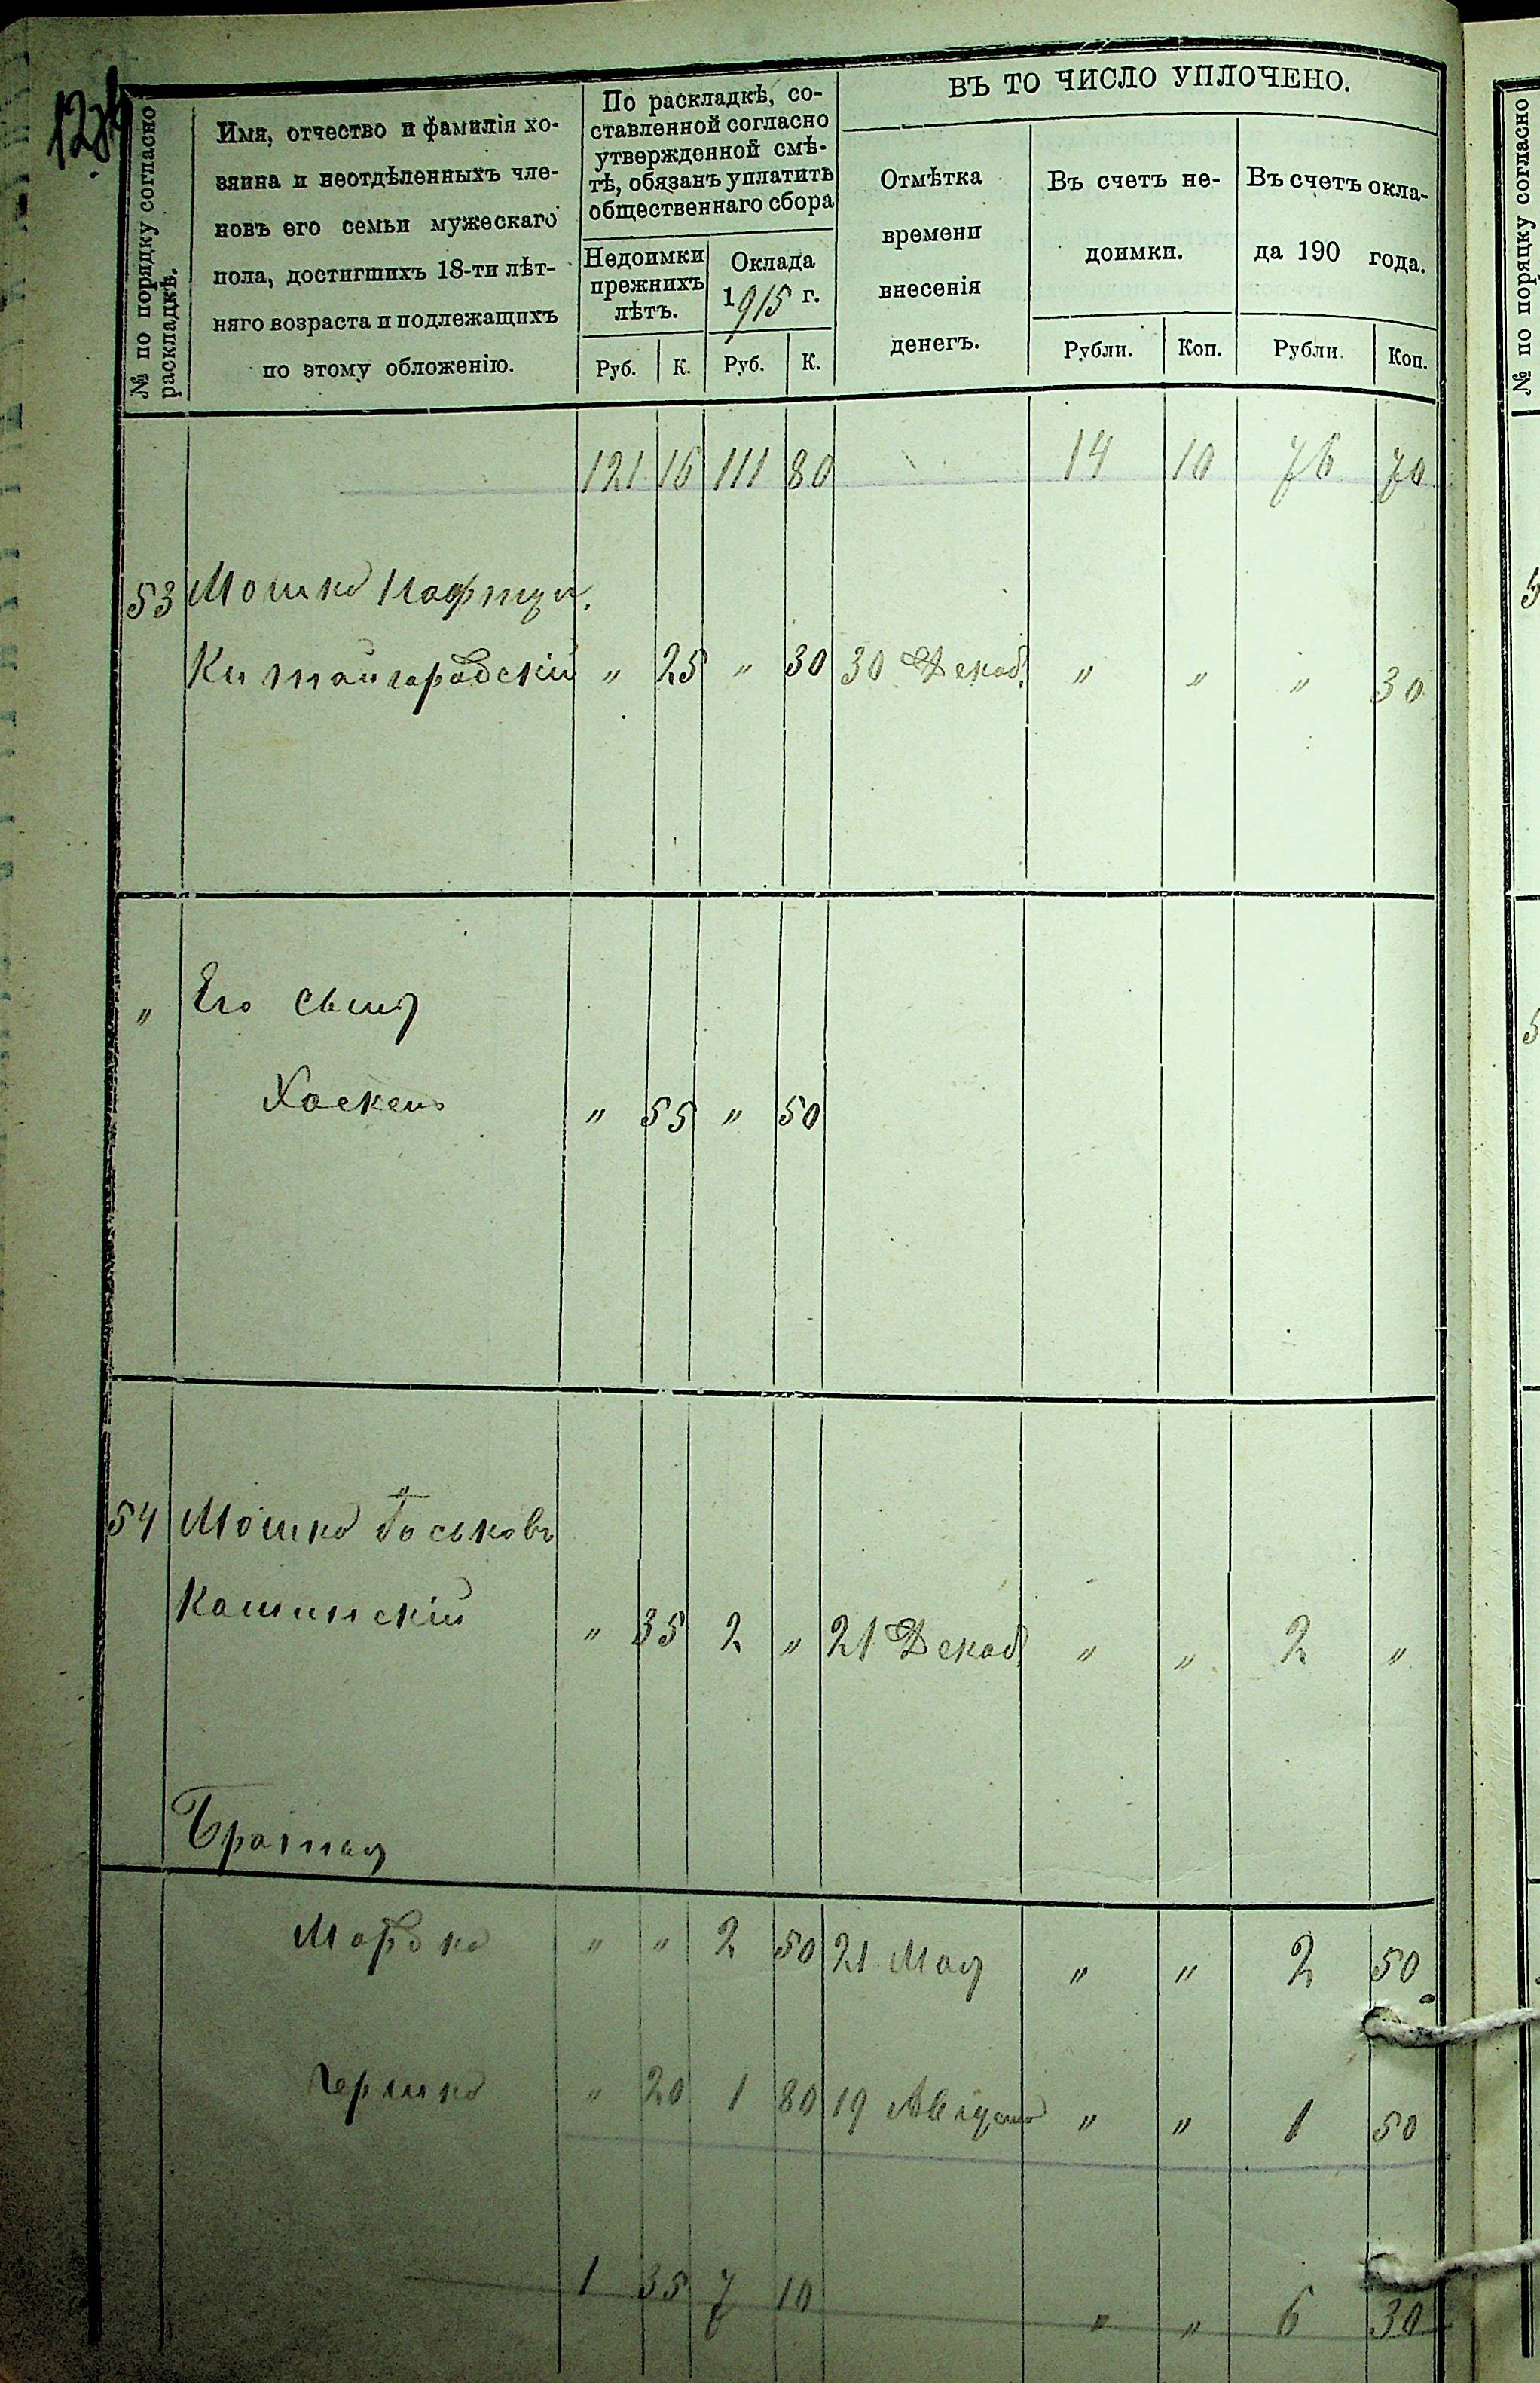 ВЪ ТО ЧИСЛО УПЛОЧЕНО.
№ по порядку согласно
раскладкѣ.
Имя, отчество и фамилія хо-
зяина и неотдѣленныхъ чле-
новъ его семьи мужескаго
пола, достигшихъ 18-ти лѣт-
няго возраста и подлежащихъ
по этому обложенію.
По раскладкѣ, со-
ставленной согласно
утвержденной смѣ-
тѣ, обязанъ уплатить
общественнаго сбора
Недоимки
прежнихъ
лѣтъ.
Оклада
1915 г.
Руб. К. Руб. К.
Отмѣтка
времени
внесенія
денегъ.
Въ счетъ не-
доимки.
Рубли. Коп.
Въ счетъ окла-
да 190 года.
Рубли. Коп.
121 16 111 80 14 10 76 70
53 Мошко Нафтул.
Китайгородскій " 25 " 30 30 Декаб. " " " 30
" Его сынъ
Хаскель " 55 " 50
54 Мошко Іоськовъ
Кашинскій " 35 2 " 21 Декаб. " " 2 "
Братья
Мордко " " 2 50 21 Мая " " 2 50
Гершко " 20 1 80 19 Августа " " 1 50
1 35 7 10 " " 6 30
№ по порядку согласно